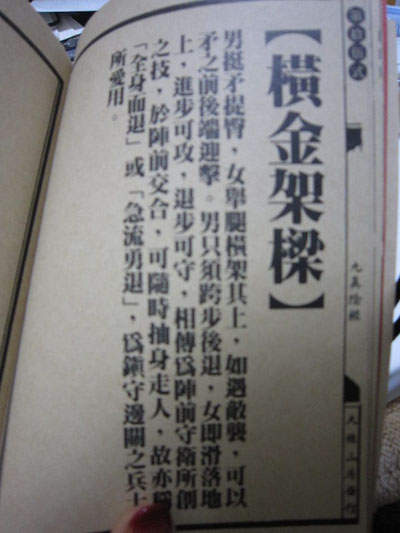 【橫金架樑】
男挺矛提臀，女舉腿橫架其上，如遇敵襲，可以
矛之前後端迎擊。男只須跨步後退，女即滑落地
上，進步可攻，退步可守，相傳爲陣前守衛所創
之技，於陣前交合，可隨時抽身走人，故亦稱
「全身而退」或「急流勇退」，爲鎮守邊關之兵士
所愛用。
九真陰經